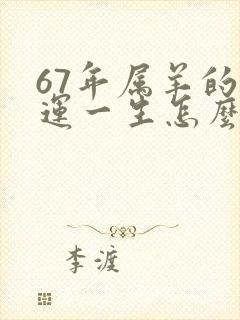 67年属羊的
运一生怎麼
李渡